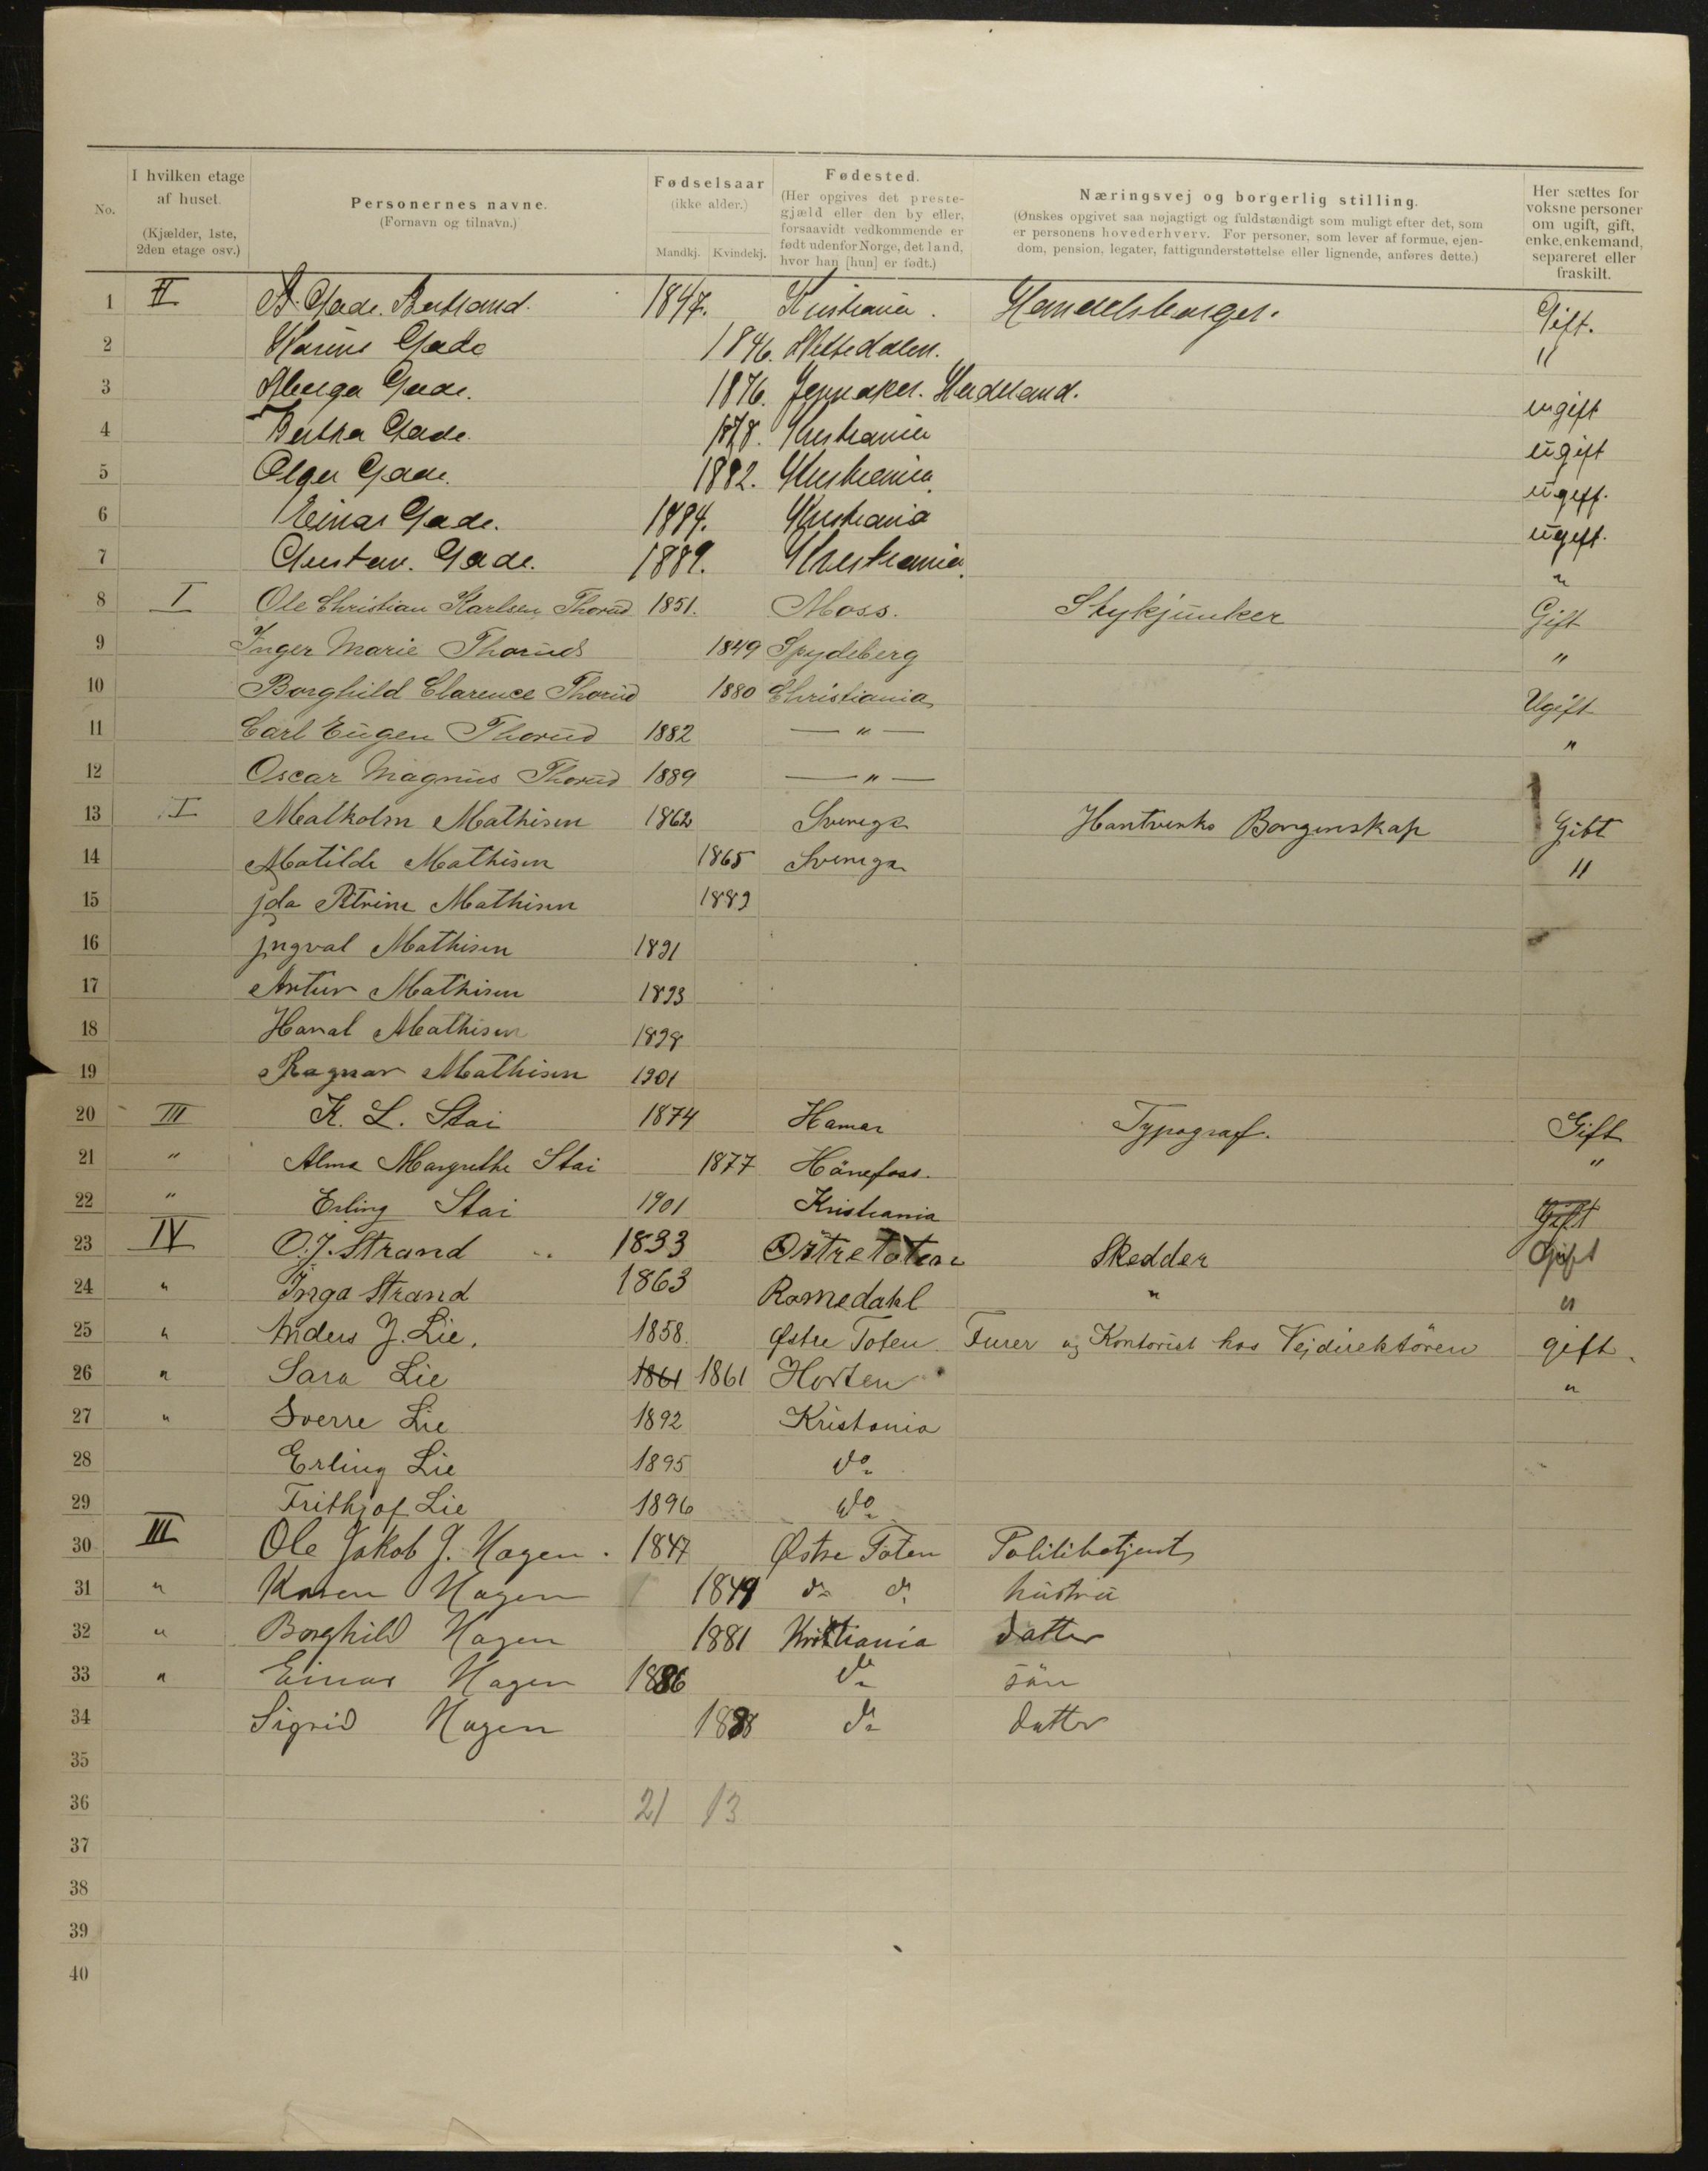 No.
I hvilken etage af huset.
(Kjælder, 1ste, 2den etage osv.)
Personernes navne.
(Fornavn og tilnavn.)
Fødselsaar
(ikke alder.)
Mandkj. Kvindekj.
Fødested.
(Her opgives det prestegjæld eller den by eller, forsaavidt vedkommende er født udenfor Norge, det land, hvor han [hun] er født.)
Næringsvej og borgerlig stilling.
(Ønskes opgivet saa nøjagtigt og fuldstændigt som muligt efter det, som er personens hovederhverv. For personer, som lever af formue, ejendom, pension, legater, fattigunderstøttelse eller lignende, anføres dette.)
Her sættes for voksne personer om ugift, gift, enke, enkemand, separeret eller fraskilt.
1 II Gade 1847. Kristiania. Handelsborger. Gift.
2 Gade 1846. "
3 Gade. 1876. Jevnaker. Hadeland. ugift
4 Bertha Gade. 1878. Kristiania ugift
5 Olga Gade. 1882. Kristiania ugift.
6 Einar Gade. 1884. Kristiania ugift.
7 Gustav. Gade. 1889. Kristiania "
8 I Ole Christian Karlsen Thorud 1851. Moss. Stykjunker Gift
9 Inger Marie Thorud 1849 Spydeberg "
10 Borghild Clarence Thorud 1880 Christiania Ugift
11 Carl Eugen Thorud 1882 — " — "
12 Oscar Magnus Thorud 1889 — " —
13 I Malkolm Mathisen 1862 Sverige Hantverks Borgerskap Gift
14 Matilde Mathisen 1865 Sverige "
15 Ida Petrine Mathisen 1889
16 Ingval Mathisen 1891
17 Artur Mathisen 1893
18 Mathisen 1898
19 Ragnar Mathisen 1901
20 III K. L. Stai 1874 Hamar Typograf. Gift
21 " Alma Margrethe Stai 1877 Hönefoss. "
22 " Erling Stai 1901 Kristiania Gift
23 IV O. J. Strand 1833 Östre Toten Skredder Gift
24 " Inga Strand 1863 Romedahl " "
25 " Anders J. Lie. 1858. Østre Toten. Furer og Kontorist hos Vejdirektören gift.
26 " Sara Lie 1861 1861 Horten "
27 " Sverre Lie 1892 Kristania
28 Erling Lie 1895 do
29 Frithjof Lie 1896 do
30 III Ole Jakob J. Hagen. 1847 Østre Toten Politibetjent
31 " Karen Hagen 1849 do do hustru
32 " Borghild Hagen 1881 Kristiania datter
33 " Einar Hagen 1886 do sön
34 Sigrid Hagen 1888 do datter
35
36 21 13
37
38
39
40